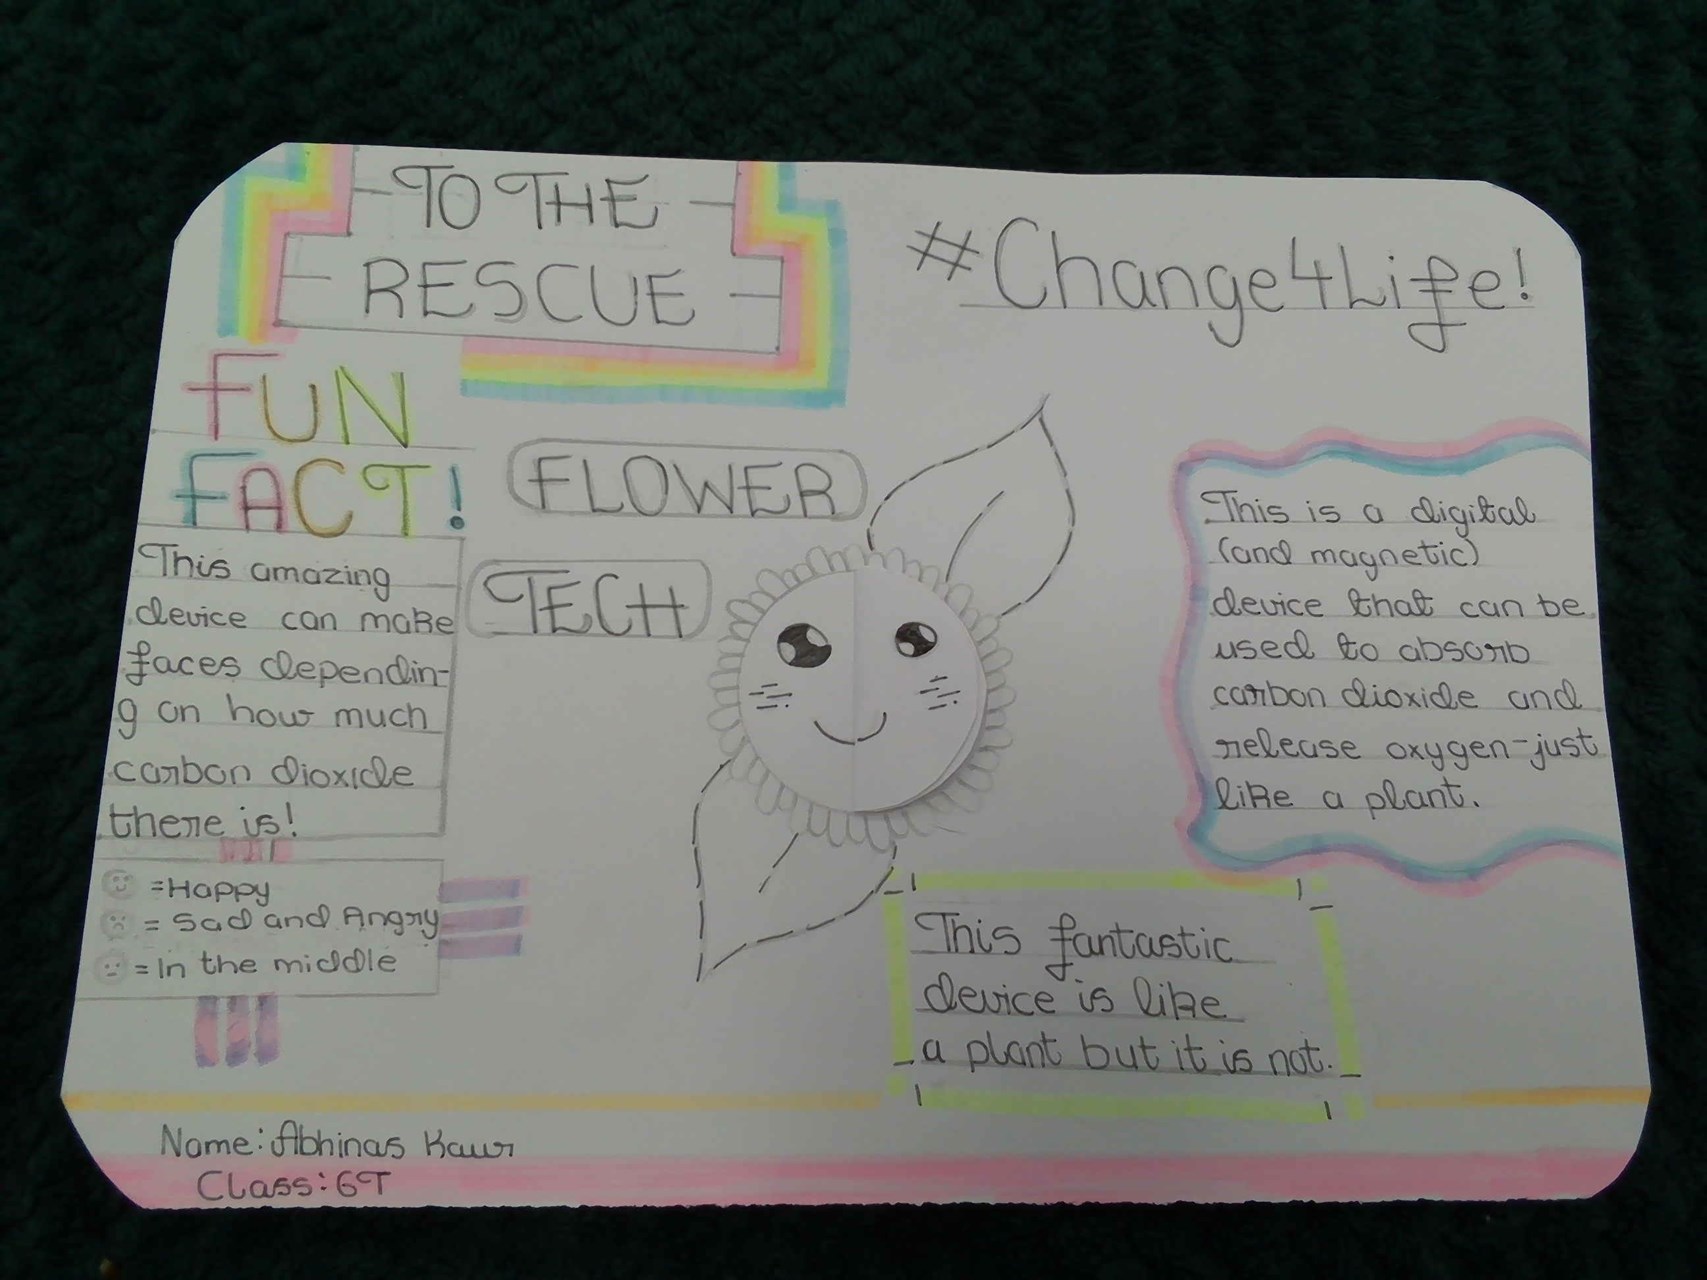 TO THE
RESCUE
#Change4Life!
FUN
FACT!
This amazing
device can make
faces dependin-
g on how much
carbon dioxide
there is!
=Happy
= Sad and Angry
=In the middle
FLOWER
TECH
This is a digital
(and magnetic)
device that can be
used to absorb
carbon dioxide and
release oxygen-just
like a plant.
This fantastic
device is like
a plant but it is not.
Name: Abhinas Kaur
Class: 6T